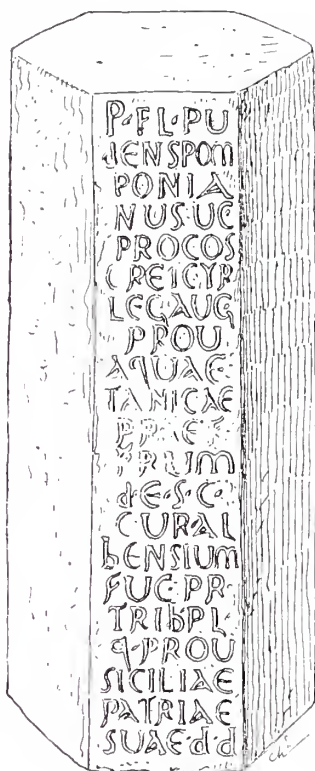 P·FL·PU
dENSPOM
PONIA
NUSUC
PROCOS
CREICYR
LEGAUG
PROU
AqUAE·
TANICAE
dE·S·CO
CURAL
bENSIUM
FUC·PR·
TRIbPL·
q·PROU
SICILIAE
PATRIAE
SUAE·d·d